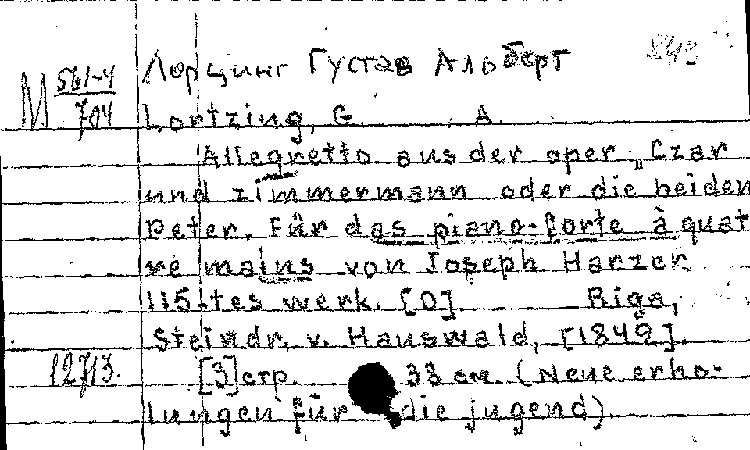 Лорцинг Густав Альберт
М 561-4/704
Lortzing, G. A.
Allegretto aus der oper „Czar
und zimmermann oder die beiden
Peter. Für das piano-forte à quat
re mains von Joseph Harzer
115-tes werk. [O]. Riga,
Steindr. v. Hauswald, [1849].
12713. [3] стр. 33 см. (Neue erho-
lungen für die jugend).